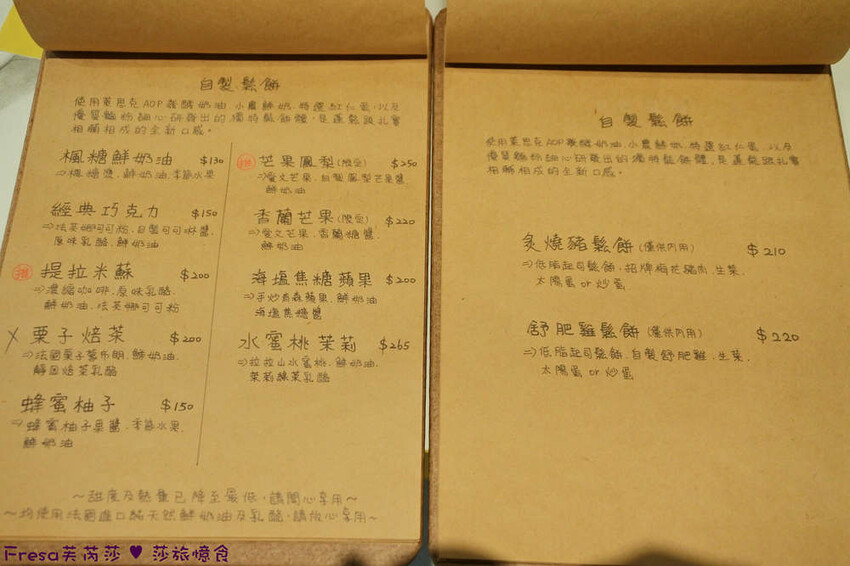 自製鬆餅
使用萊思克AOP發酵奶油.小農鮮奶.特選紅仁蛋.以及
優質麵粉細心研發出的獨特鬆餅體,是蓬鬆跟扎實
相輔相成的全新口感。
楓糖鮮奶油 $130
⇒楓糖漿.鮮奶油.季節水果
經典巧克力 $150
⇒法芙娜可可粉.自製可可淋醬.
原味乳酪.鮮奶油
推 提拉米蘇 $200
⇒濃縮咖啡.原味乳酪.
鮮奶油.法芙娜可可粉
X 栗子焙茶 $200
⇒法國栗子蒙布朗.鮮奶油.
靜岡焙茶乳酪
蜂蜜柚子 $150
⇒蜂蜜柚子果醬.季節水果.
鮮奶油
推 芒果鳳梨(限定) $250
⇒愛文芒果.自製鳳梨芒果醬.
鮮奶油
香蘭芒果(限定) $220
⇒愛文芒果.香蘭糖醬.
鮮奶油
海塩焦糖蘋果 $200
⇒手炒青森蘋果.鮮奶油.
海塩焦糖醬
水蜜桃茉莉 $265
⇒拉拉山水蜜桃.鮮奶油.
茉莉綠茶乳酪
~甜度及熱量已降至最低,請開心享用~
~均使用法國進口純天然鮮奶油及乳酪,請放心享用~
自製鬆餅
使用萊思克AOP發酵奶油.小農鮮奶.特選紅仁蛋.以及
優質麵粉細心研發出的獨特鬆餅體,是蓬鬆跟扎實
相輔相成的全新口感。
炙燒豬鬆餅(僅供內用) $210
⇒低脂起司鬆餅.招牌梅花豬肉.生菜.
太陽蛋 or 炒蛋
舒肥雞鬆餅(僅供內用) $220
⇒低脂起司鬆餅.自製舒肥雞.生菜.
太陽蛋 or 炒蛋
Fresa芙芮莎♥莎旅憶食